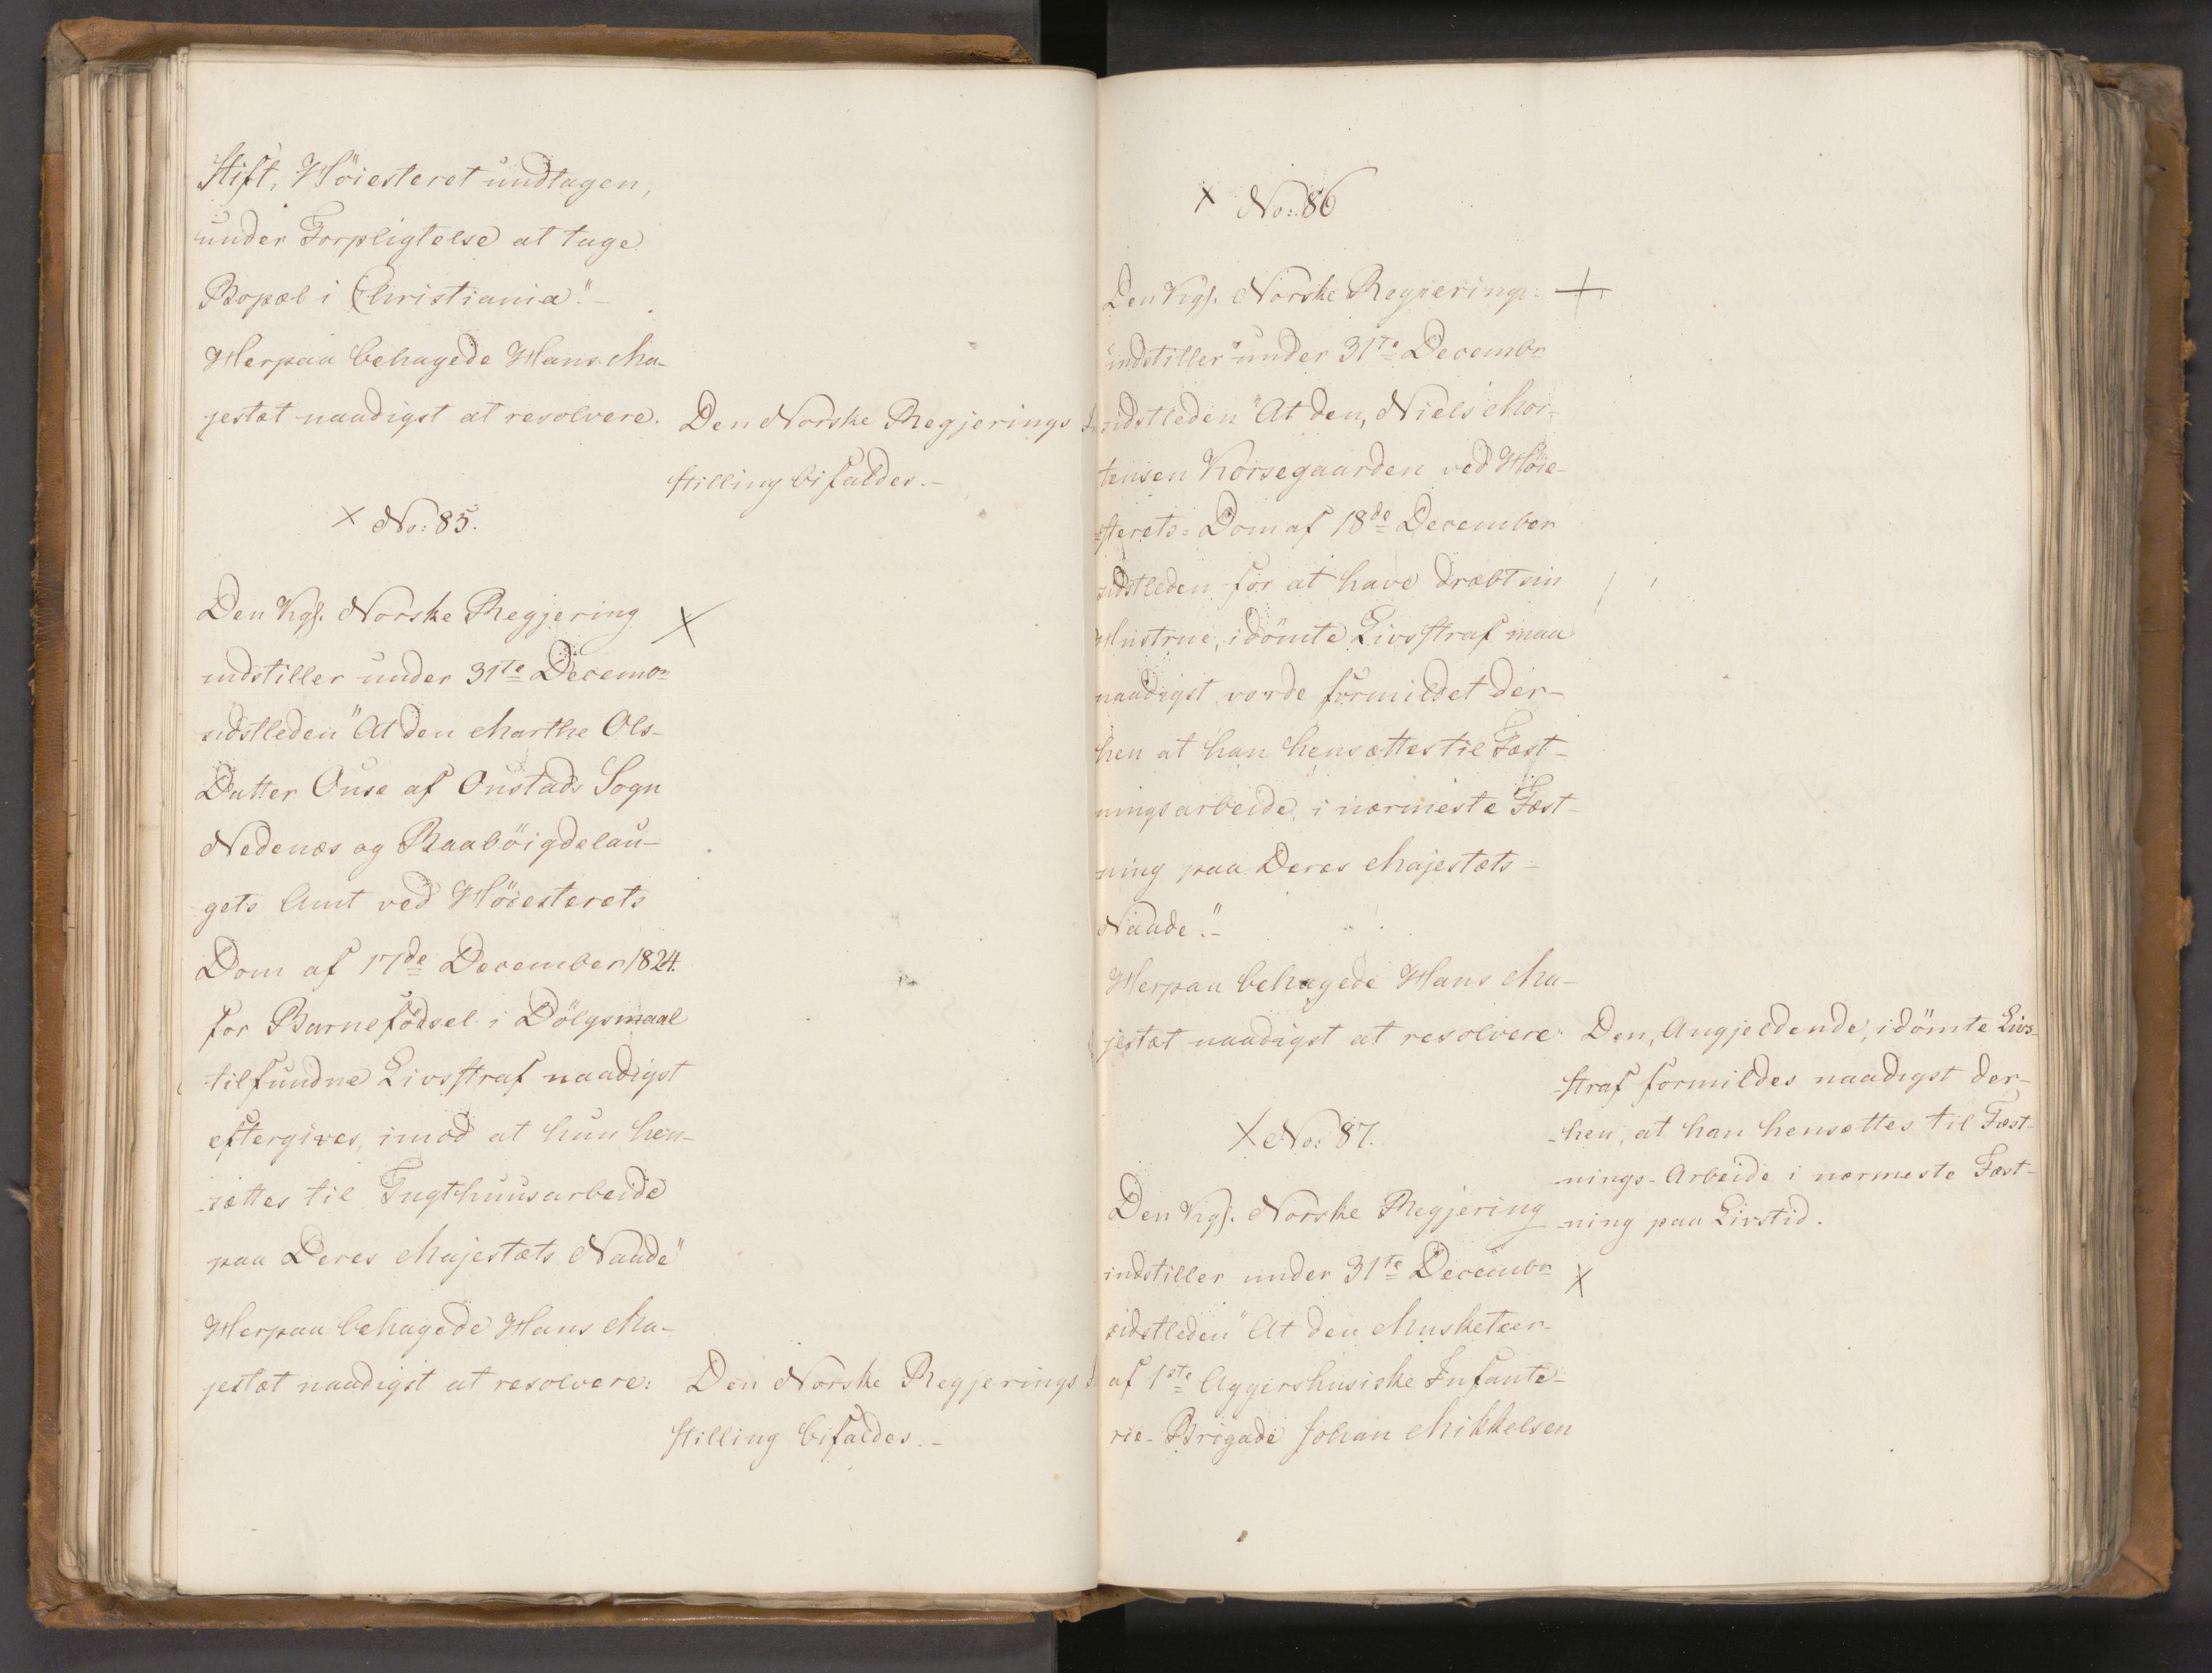 Stift, Höiesteret undtagen,
under Forpligtelse at tage
Bopæl i Christiania."-
Herpaa behagede Hans Ma-
jestæt naadigst at resolvere.
Den Norske Regjerings
stilling bifaldes.-
× No: 85.
Den Kgl. Norske Regjering
×
indstiller under 31te Decembr
sidstleden "At den Marthe Ols-
Datter Ouse af Oustads Sogn
Nedenæs og Raabøigdelau-
gets Amt ved Höiesterets
Dom af 17de December 1824.
for Barnefödsel i Dölgsmaal
tilfundne Livsstraf naadigst
eftergives, imod at hun hen-
sættes til Tugthuusarbeide
paa Deres Majestæts Naade"
Herpaa behagede Hans Ma-
jestæt naadigst at resolvere:
Den Norske Regjerings
stilling bifaldes.-
× No: 86
Den Kgl. Norske Regjering
+
indstiller under 31te Decembr
sidstleden "At den, Niels Mor-
tensen Korsegaarden ved Höie-
sterets-Dom af 18de December
sidstleden for at have dræbt sin
Hustrue, idömte Livsstraf maa
naadigst vorde formildet der-
hen at han hensættes til Fæst-
ningsarbeide i nærmeste Fæst-
ning paa Deres Majestæts-
Naade."-
Herpaa behagede Hans Ma-
jestæt naadigst at resolvere:
Den, Angjeldende, idömte Livs-
straf formildes naadigst der-
-hen, at han hensættes til Fæst-
-nings-Arbeide i nærmeste Fæst-
-ning paa Livstid.
× No: 87.
Den Kgl. Norske Regjering
indstiller under 31te Decembr
×
sidstleden "At den Musketeer-
af 1ste Aggershusiske Infante-
rie-Brigade Johan Mikkelsen